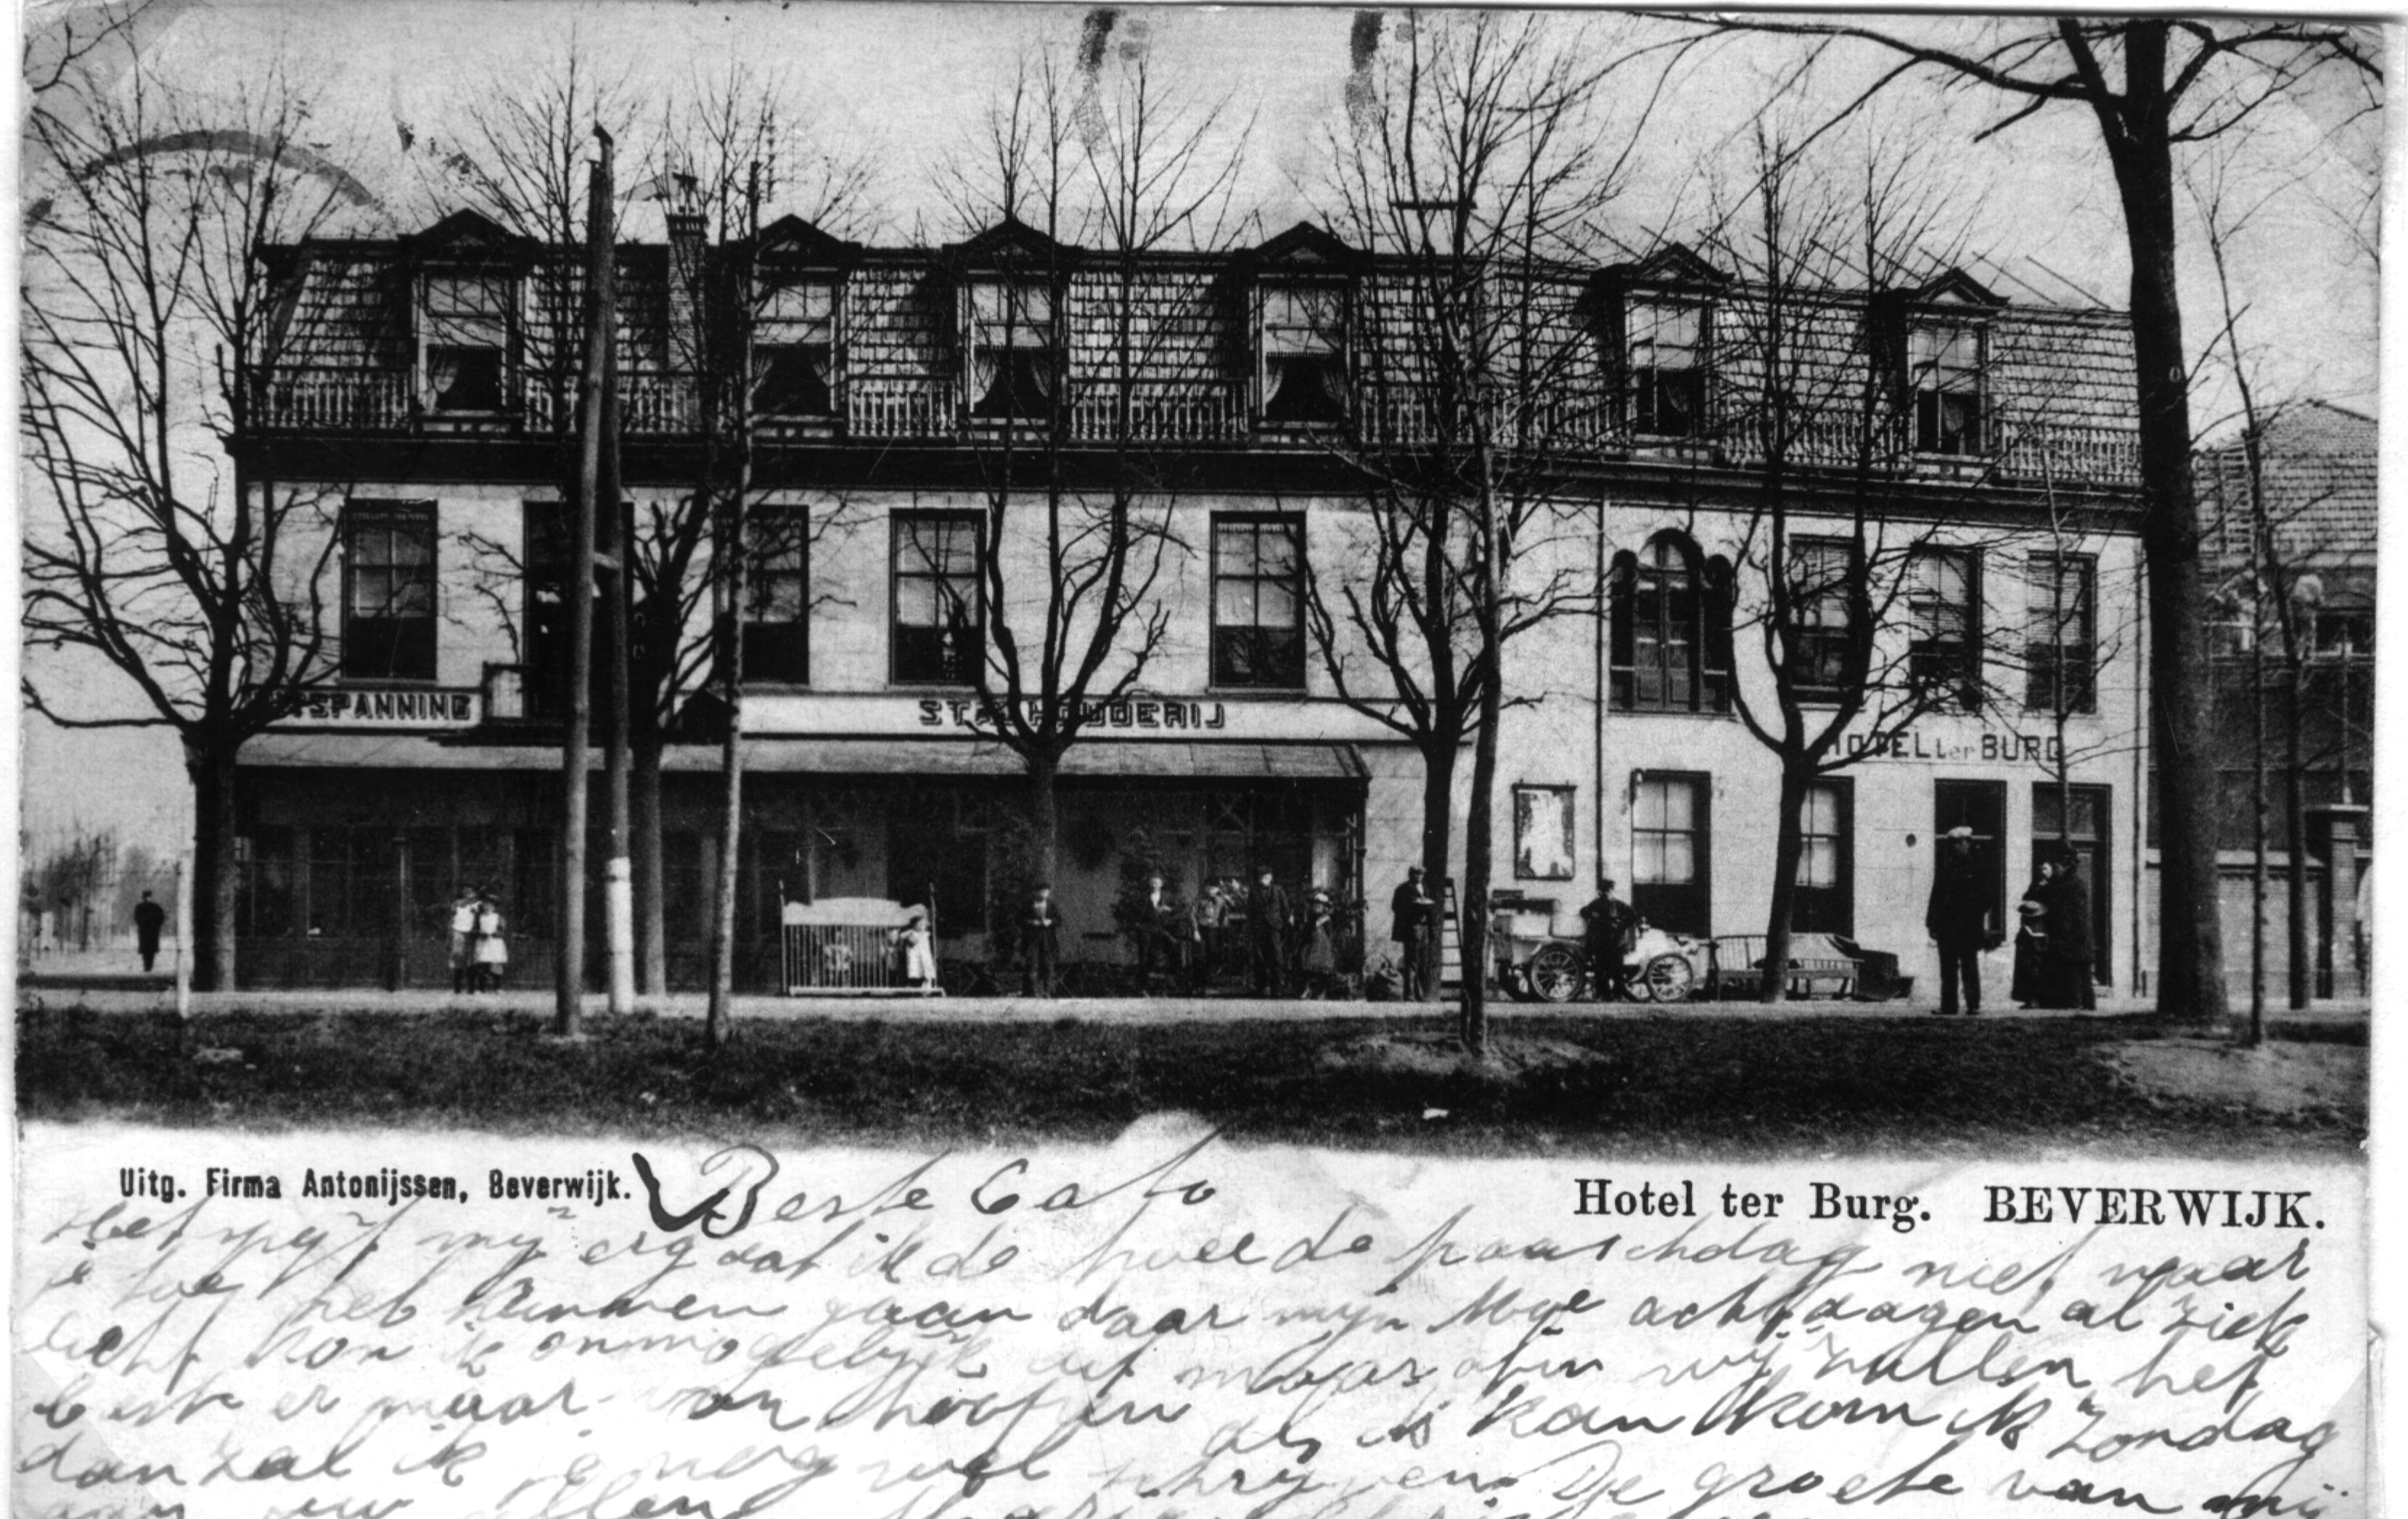 UITSPANNING
STALHOUDERIJ
HOTEL ter BURG
Uitg. Firma Antonijssen, Beverwijk.
Hotel ter Burg. BEVERWIJK.
Beste Cato
Het spijt mij erg dat ik de tweede paaschdag niet naar
je toe heb kunnen gaan daar mijn Moe acht dagen al ziek
licht kon ik onmogelijk uit maar wij zullen het
beste er maar van hoopen als ik kan kom ik Zondag
dan zal ik je nog wel schrijven De groete van mij
aan uw allen